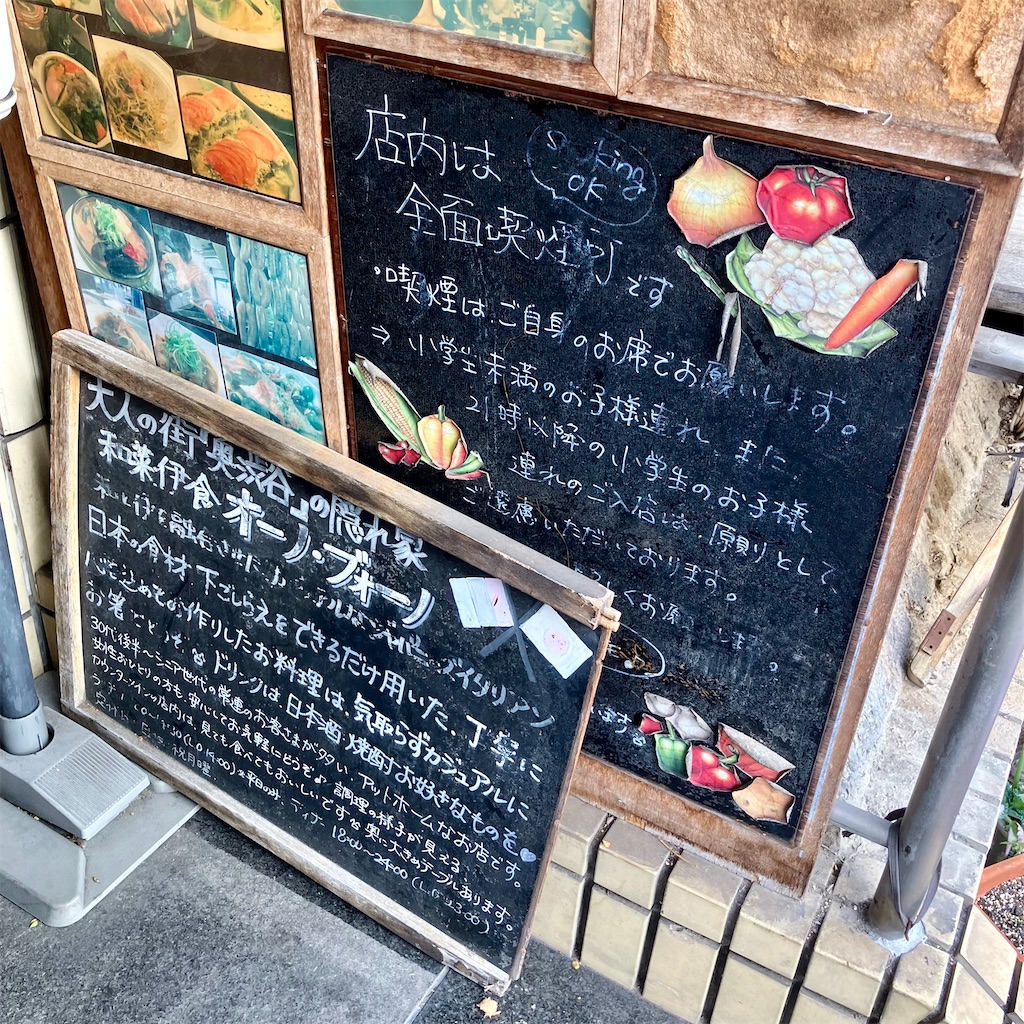 店内は
Smoking
OK
全面喫煙可です
・喫煙は、ご自身のお席でお願いします。
⇒ 小学生未満のお子様連れ、また
21時以降の小学生のお子様
連れのご入店は、原則として、
ご遠慮いただいております。
大人の街「奥渋谷」の隠れ家
和菜伊食 オーノ・ブオーノ
日本の食材、下ごしらえをできるだけ用いた、丁寧に
心を込めお作りしたお料理は、気取らずカジュアルに
お箸でどうぞ ドリンクは、日本酒、焼酎お好きなものを♡
30代後半〜シニア世代の常連のお客さまが多い、アットホームなお店です。
女性おひとりの方も、安心してお気軽にどうぞ♪ 調理の様子が見える、
カウンターメインの店内は、見ても食べてもおいしいです 奥に大きめテーブルあります。
ディナー 18:00〜24:00 (L.O 23:00)